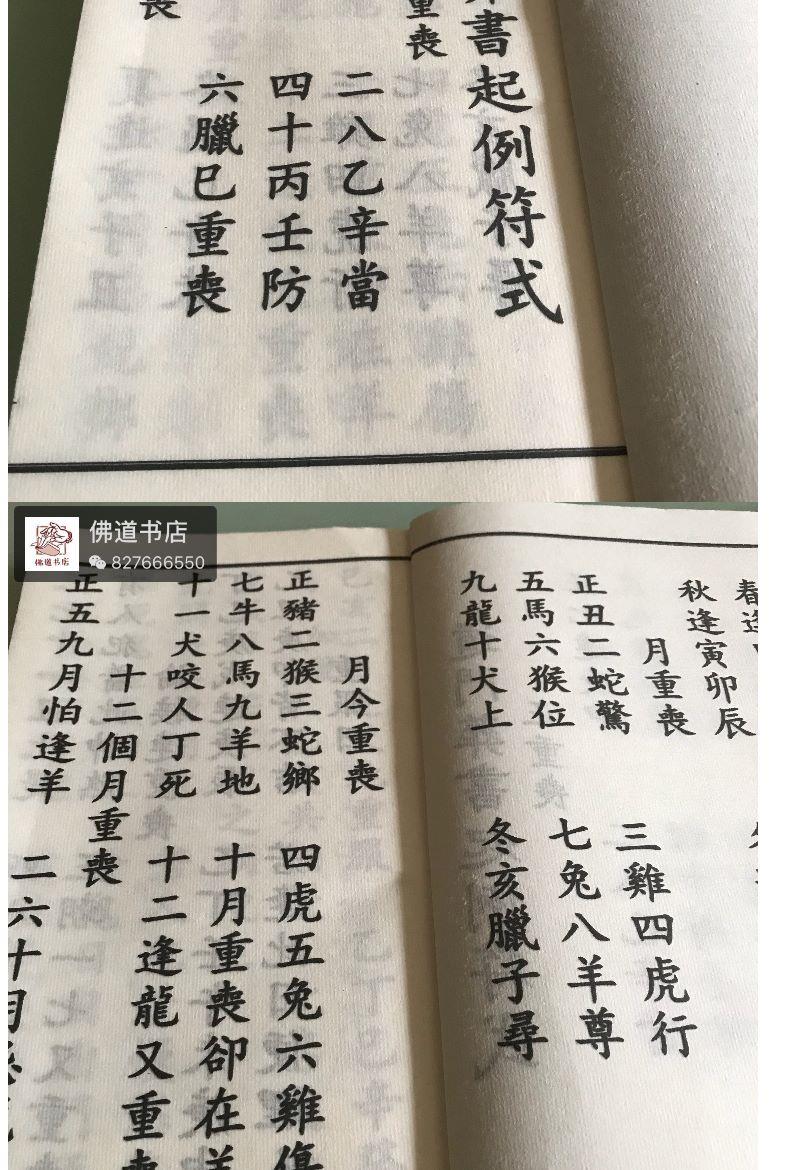 書起例符式
重喪
二八乙辛當
四十丙壬防
六臘巳重喪
喪
佛道书店
827666550
佛道书店
春逢
秋逢寅卯辰
月重喪
正丑二蛇驚
三雞四虎行
五馬六猴位
七兔八羊尊
九龍十犬上
冬亥臘子尋
月令重喪
正豬二猴三蛇鄉
四虎五兔六雞傷
七牛八馬九羊地
十月重喪卻在
十一犬咬人丁死
十二逢龍又重
十二個月重喪
正五九月怕逢羊
二六十月